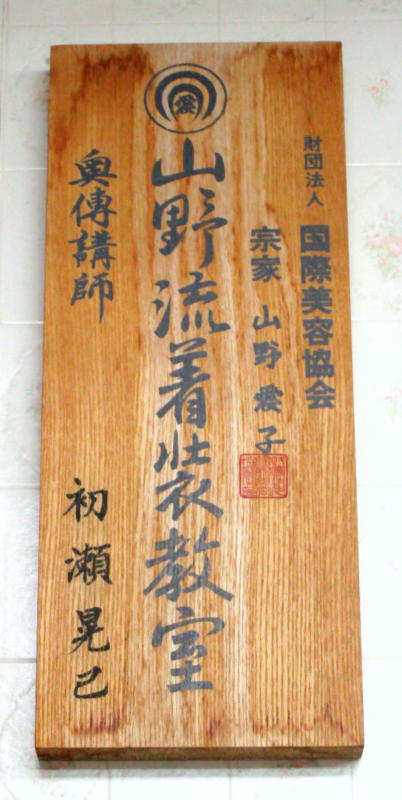 財団法人 国際美容協会
宗家 山野愛子
愛
山野流着装教室
奥傳講師 初瀬晃己